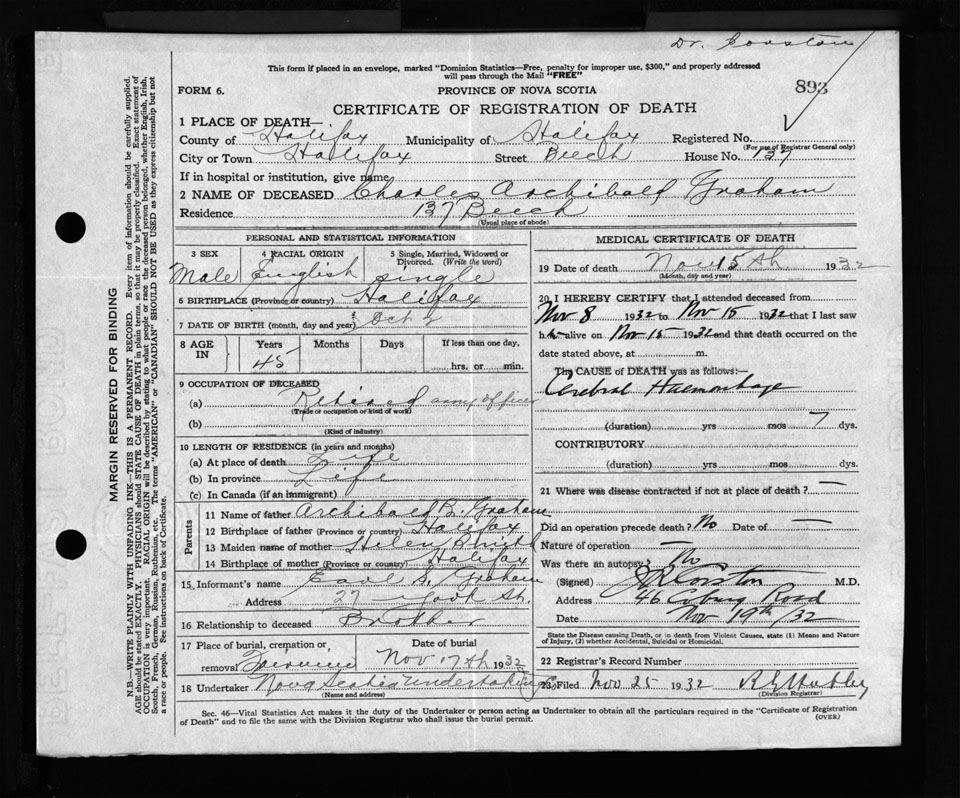 Dr. Corston
This form if placed in an envelope, marked "Dominion Statistics—Free, penalty for improper use, $300," and properly addressed
will pass through the Mail "FREE"
893
FORM 6.
PROVINCE OF NOVA SCOTIA
CERTIFICATE OF REGISTRATION OF DEATH
1 PLACE OF DEATH—
County of Halifax Municipality of Halifax Registered No.
(For use of Registrar General only)
City or Town Halifax Street Beech House No. 137
If in hospital or institution, give name
2 NAME OF DECEASED Charles Archibald Graham
Residence 137 Beech
(Usual place of abode)
PERSONAL AND STATISTICAL INFORMATION
3 SEX 4 RACIAL ORIGIN 5 Single, Married, Widowed or
Divorced. (Write the word)
Male English single
6 BIRTHPLACE (Province or country) Halifax
7 DATE OF BIRTH (month, day and year) Oct 2
8 AGE
IN
Years Months Days If less than one day,
45
hrs. or min.
9 OCCUPATION OF DECEASED
(a) Retired army officer
(Trade or occupation or kind of work)
(b)
(Kind of industry)
10 LENGTH OF RESIDENCE (in years and months)
(a) At place of death Life
(b) In province Life
(c) In Canada (if an immigrant)
Parents
11 Name of father Archibald B. Graham
12 Birthplace of father (Province or country) Halifax
13 Maiden name of mother Helen
14 Birthplace of mother (Province or country) Halifax
15. Informant's name Earl S. Graham
Address 27 York St.
16 Relationship to deceased Brother
17 Place of burial, cremation or, Date of burial
removal Fairview Nov 17th 1932
18 Undertaker Nova Scotia Undertaking Co
(Name and address)
MEDICAL CERTIFICATE OF DEATH
19 Date of death Nov 15th 1932
(Month, day and year)
20 I HEREBY CERTIFY that I attended deceased from
Nov 8 1932 to Nov 15 1932 that I last saw
him alive on Nov 15 1932 and that death occurred on the
date stated above, at m.
The CAUSE of DEATH was as follows:—
Cerebral Haemorrhage
(duration) yrs mos 7 dys.
CONTRIBUTORY
(duration) yrs mos dys.
21 Where was disease contracted if not at place of death? —
Did an operation precede death? No Date of —
Nature of operation —
Was there an autopsy? No
(Signed) J R Corston M.D.
Address 46 Coburg Road
Date Nov 19th/32
State the Disease causing Death, or in death from Violent Causes, state (1) Means and Nature
of Injury, (2) whether Accidental, Suicidal or Homicidal.
22 Registrar's Record Number
23 Filed Nov 25 1932 R G Hubley
(Division Registrar)
Sec. 46—Vital Statistics Act makes it the duty of the Undertaker or person acting as Undertaker to obtain all the particulars required in the "Certificate of Registration
of Death" and to file the same with the Division Registrar who shall issue the burial permit.
(OVER)
MARGIN RESERVED FOR BINDING
N.B.—WRITE PLAINLY WITH UNFADING INK—THIS IS A PERMANENT RECORD. Every item of information should be carefully supplied.
AGE should be stated EXACTLY. PHYSICIANS should STATE CAUSE OF DEATH in plain terms, so that it may be properly classified. Exact statement of
OCCUPATION is very important. RACIAL ORIGIN will be described by stating to what people or race the deceased person belonged, whether English, Irish,
Scotch, French, German, Russian, Ruthenian, etc. The terms "AMERICAN" or "CANADIAN" SHOULD NOT BE USED as they express citizenship but not
a race or people. See instructions on back of Certificate.